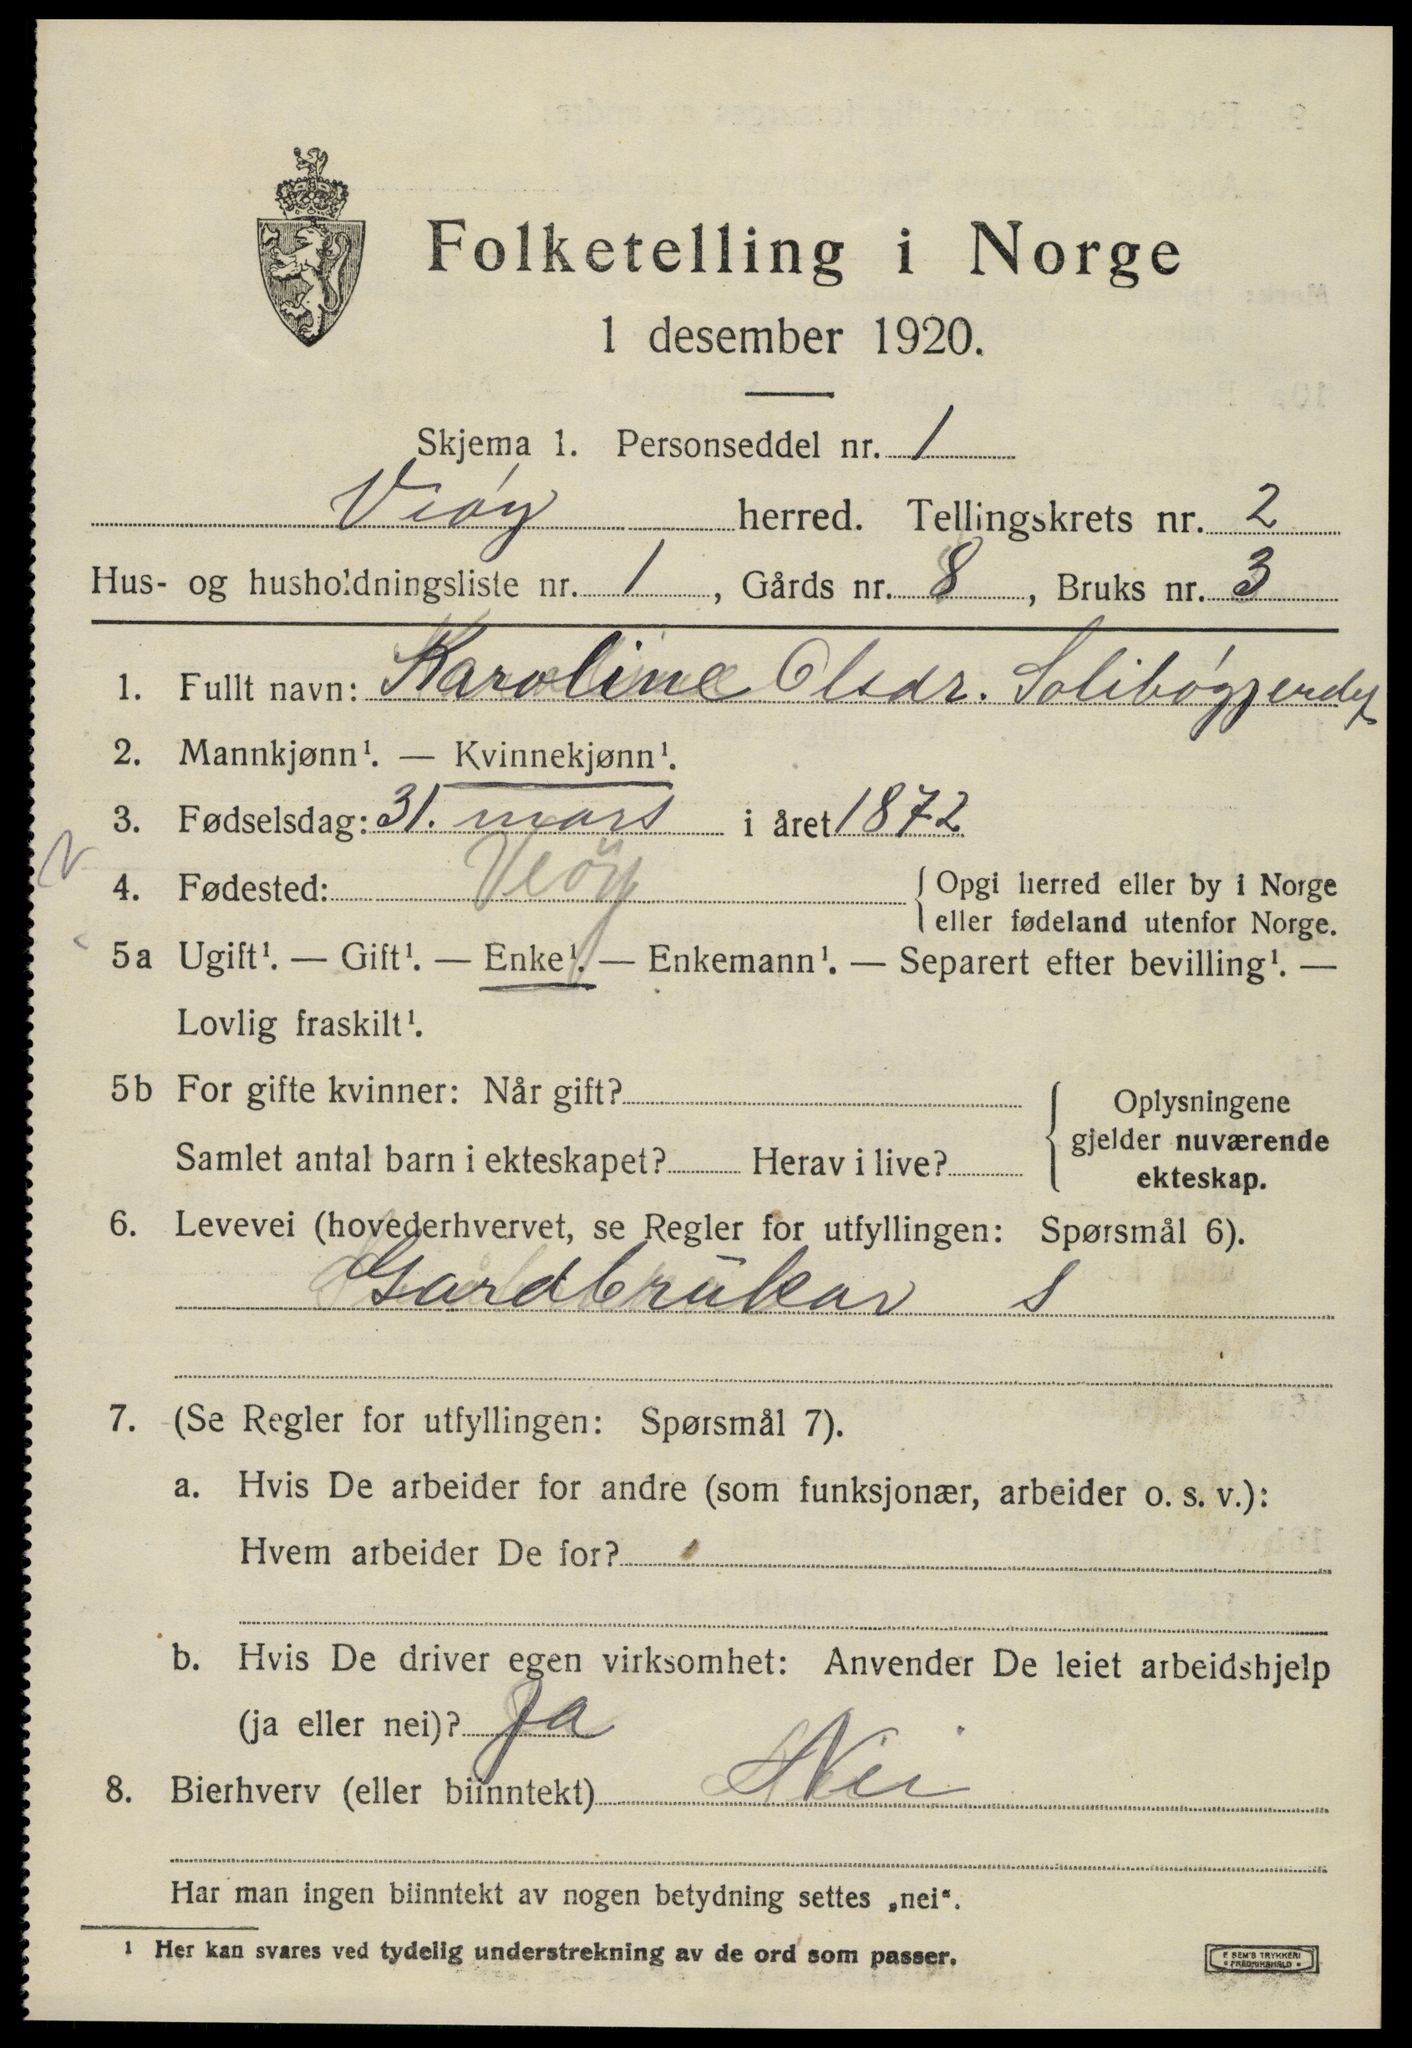 Folketelling i Norge
1 desember 1920.
Skjema 1. Personseddel nr. 1
Veøy herred. Tellingskrets nr. 2
Hus- og husholdningsliste nr. 1, Gårds nr. 8, Bruks nr. 3
1. Fullt navn: Karoline Olsdr. Solibøgjerdet
2. Mannkjønn¹. — Kvinnekjønn¹.
3. Fødselsdag: 31. mars i året 1872
4. Fødested: Veöy { Opgi herred eller by i Norge
eller fødeland utenfor Norge.
5a Ugift¹. — Gift¹. — Enke¹. — Enkemann¹. — Separert efter bevilling¹. —
Lovlig fraskilt¹.
5b For gifte kvinner: Når gift? { Oplysningene
gjelder nuværende
Samlet antal barn i ekteskapet? Herav i live?
ekteskap.
6. Levevei (hovederhvervet, se Regler for utfyllingen: Spørsmål 6).
Gardbrukar S
7. (Se Regler for utfyllingen: Spørsmål 7).
a. Hvis De arbeider for andre (som funksjonær, arbeider o. s. v.):
Hvem arbeider De for?
b. Hvis De driver egen virksomhet: Anvender De leiet arbeidshjelp
(ja eller nei)? Ja
8. Bierhverv (eller biinntekt) Nei
Har man ingen biinntekt av nogen betydning settes „nei“.
¹ Her kan svares ved tydelig understrekning av de ord som passer.
F. SEM'S TRYKKERI
FREDRIKSHALD